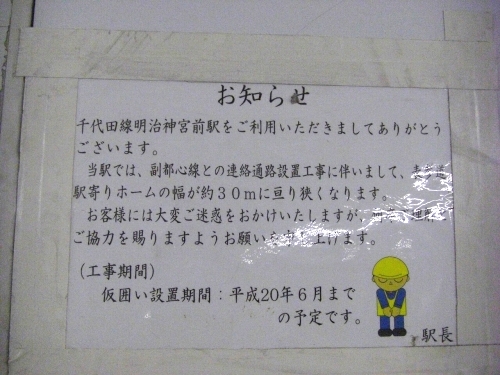 お知らせ
千代田線明治神宮前駅をご利用いただきましてありがとう
ございます。
当駅では、副都心線との連絡通路設置工事に伴いまして、
駅寄りホームの幅が約３０ｍに亘り狭くなります。
お客様には大変ご迷惑をおかけいたしますが、
ご協力を賜りますようお願い申し上げます。
（工事期間）
仮囲い設置期間：平成20年６月まで
の予定です。
駅長